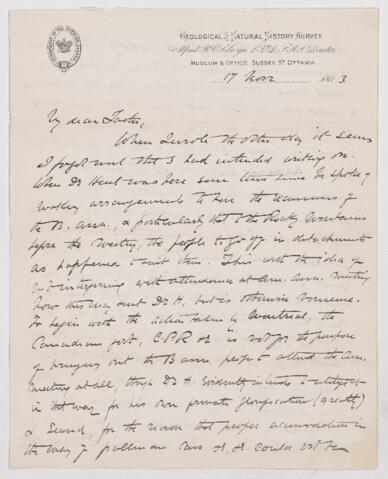 GEOLOGICAL & NATURAL HISTORY SURVEY
Alfred R. C. Selwyn L.L.D. F.R.S. Director
MUSEUM & OFFICE, SUSSEX ST OTTAWA
17 Novr 1883
My dear Father,
When I wrote the other day it seems
I forgot what I had intended writing on.
When Dr Hunt was here some time since he spoke of
making arrangements to have the excursions of
the B. Assn. & particularly that to the Rocky Mountains
before the meeting, the people to go off in detachments
as happened to suit them. This with the idea of
not interfering with attendance at Am. Assn. meeting
how this may suit Dr H. but is otherwise nonsense.
To begin with the action taken by Montreal, the
Canadian Govt, C.P.R &c is not for the purpose
of bringing out the B Assn. people to attend the Am.
meeting at all, though Dr H. evidently intends to
in that way for his own private glorification (greatly)
& Second, for the reason that proper accomodation in
the way of pullman cars &c. &c could not be